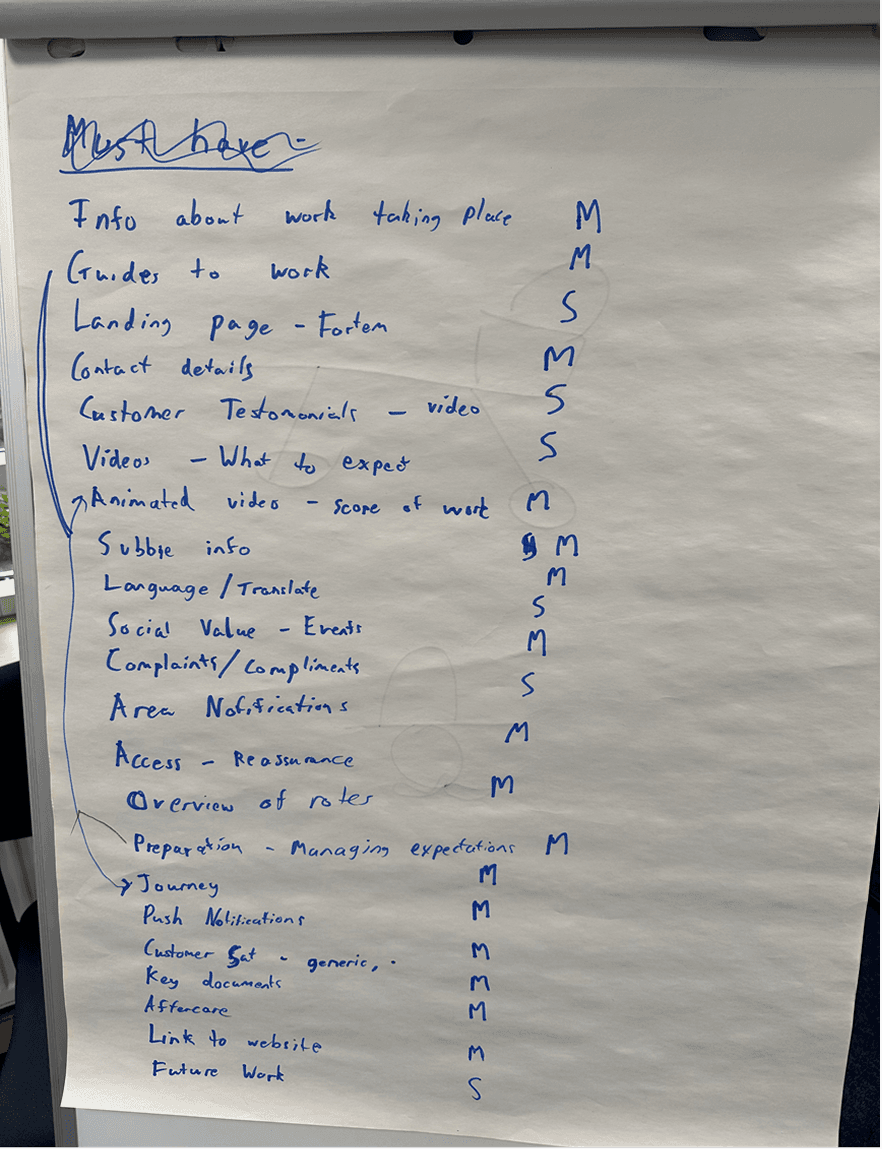 Must have -
Info about work taking place M
Guides to work M
Landing page - Fortem S
Contact details M
Customer Testomonials - video S
Videos - What to expect S
Animated video - scope of work M
Subbie info M
Language / Translate M
Social Value - Events S
Complaints / Compliments M
Area Notifications S
Access - Reassurance M
Overview of roles M
Preparation - Managing expectations M
Journey M
Push Notifications M
Customer Sat - generic, . M
Key documents M
Aftercare M
Link to website M
Future Work S